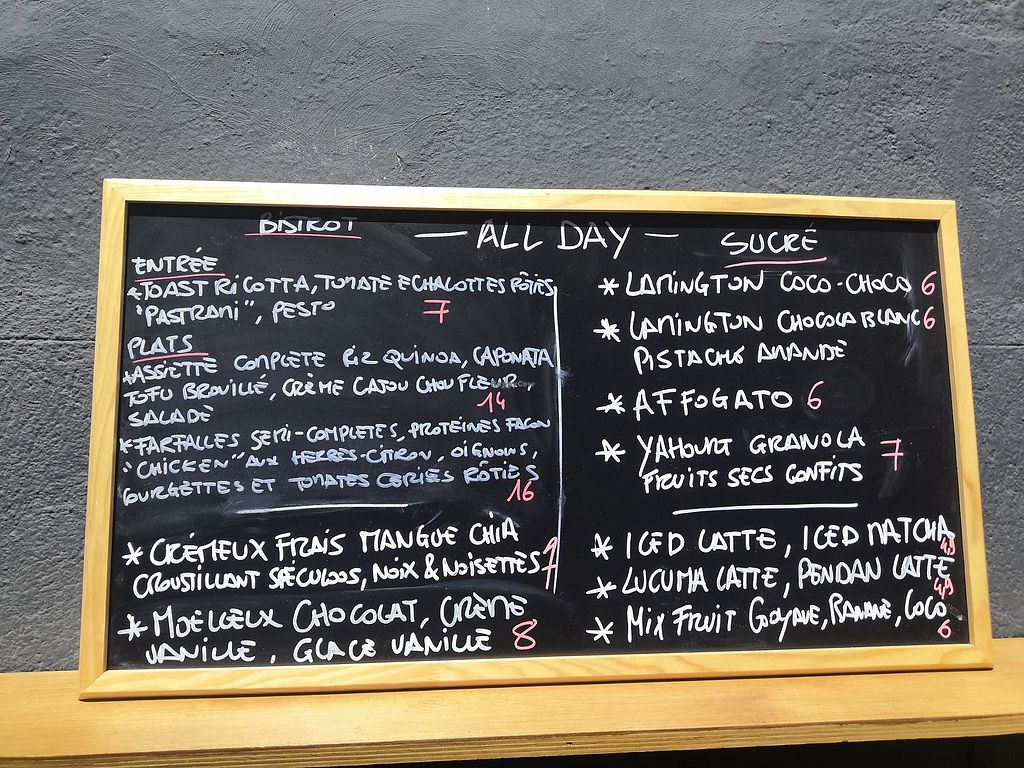 BISTROT
— ALL DAY —
SUCRÉ
ENTRÉE
*TOAST RICOTTA, TOMATE ECHALOTTES RÔTIES,
"PASTRAMI", PESTO 7
PLATS
*ASSIETTE COMPLETE RIZ QUINOA, CAPONATA
TOFU BROUILLÉ, CRÈME CAJOU CHOU FLEUR
SALADE 14
*FARFALLES SEMI-COMPLETES, PROTÉINES FAÇON
"CHICKEN" AUX HERBES-CITRON, OIGNONS,
COURGETTES ET TOMATES CERISES RÔTIES
16
* CRÉMEUX FRAIS MANGUE CHIA
CROUSTILLANT SPÉCULOOS, NOIX & NOISETTES 7
* MOELLEUX CHOCOLAT, CRÈME
VANILLE, GLACE VANILLE 8
* LAMINGTON COCO-CHOCO 6
* LAMINGTON CHOCOLA BLANC 6
PISTACHE AMANDE
* AFFOGATO 6
* YAHOURT GRANOLA 7
FRUITS SECS CONFITS
* ICED LATTE, ICED MATCHA
* LUCUMA LATTE, PENDAN LATTE
* MIX FRUIT GOYAVE, BANANE, COCO
6